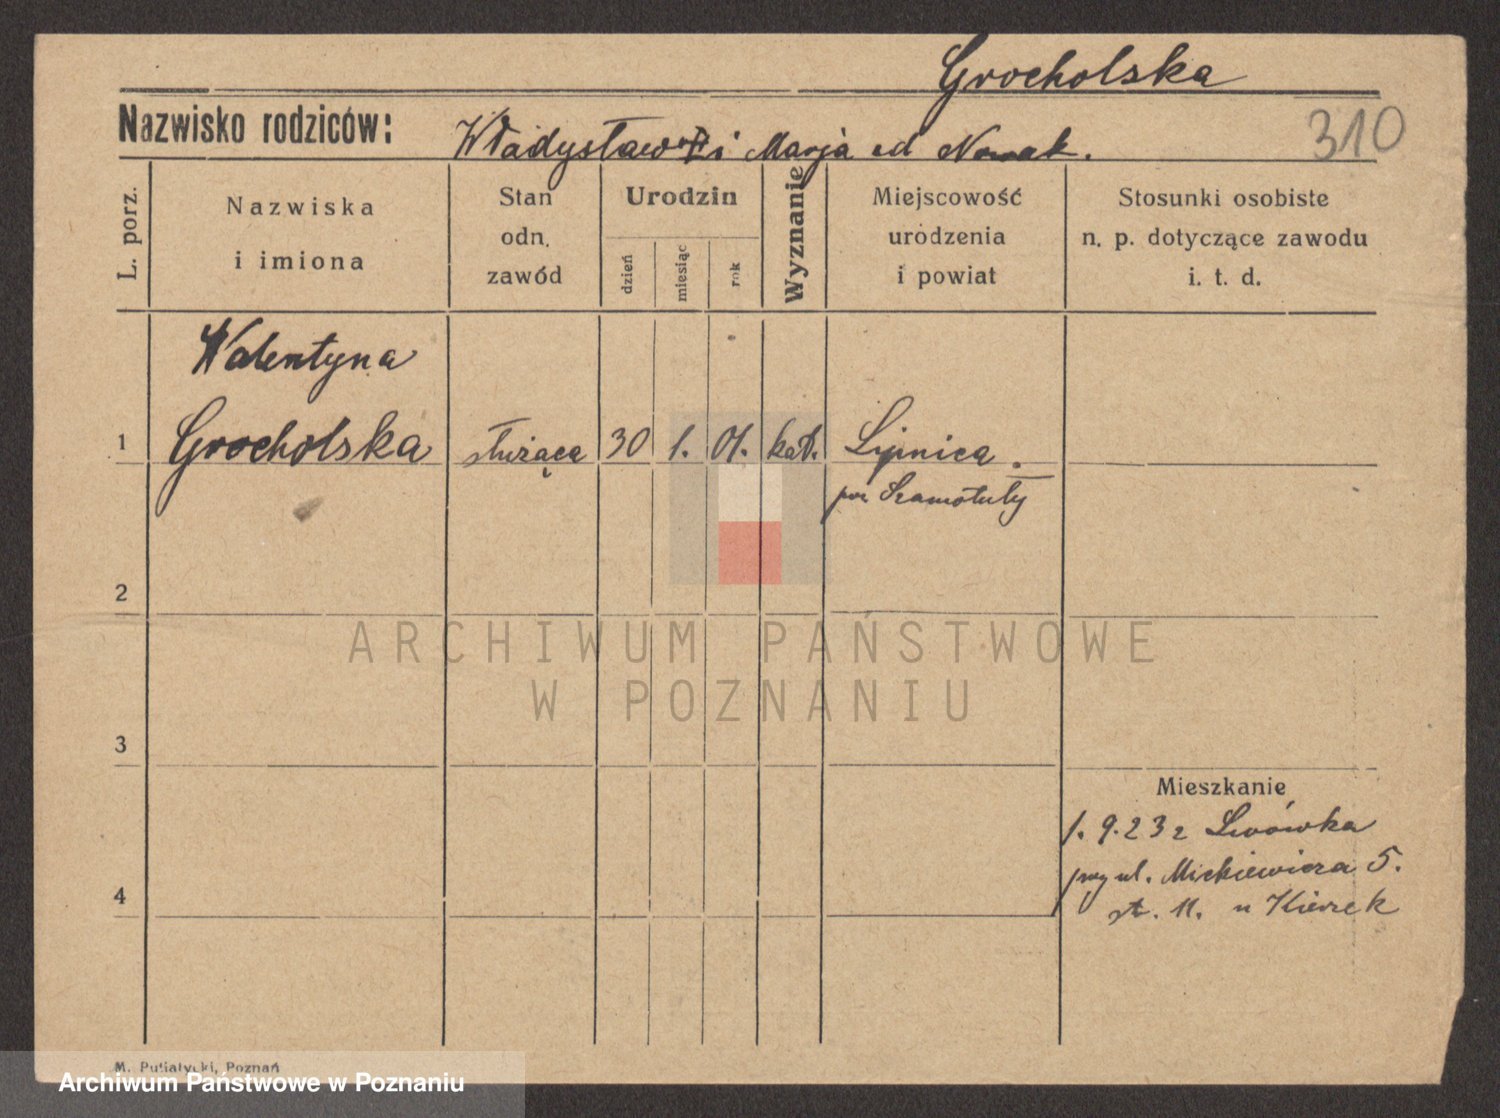 Grocholska
310
Nazwisko rodziców: Władysław i Marja od Nowak.
L. porz.
Nazwiska
i imiona
Stan
odn.
zawód
Urodzin
dzień
miesiąc
rok
Wyznanie
Miejscowość
urodzenia
i powiat
Stosunki osobiste
n. p. dotyczące zawodu
i. t. d.
Walentyna
1 Grocholska służąca 30 1. 01. kat. Lipnica.
pow Szamotuły
2
3
4
Mieszkanie
1. 9. 23 z Lwówka
przy ul. Mickiewicza 5.
st. 11. u
M. Putiatycki, Poznań
ARCHIWUM PAŃSTWOWE
W POZNANIU
Archiwum Państwowe w Poznaniu